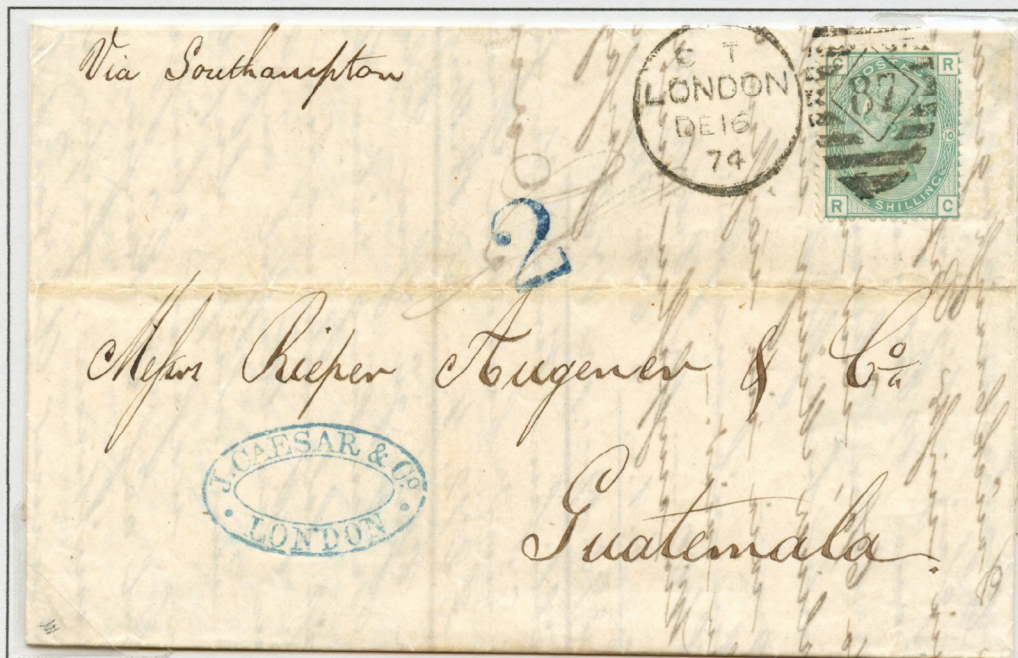 Via Southampton
C T
LONDON
DE 16
74
87
R
POSTAGE
10
SHILLING
R C
2
Messrs Rieper Augener & Co
J. CAESAR & Co.
LONDON
Guatemala.